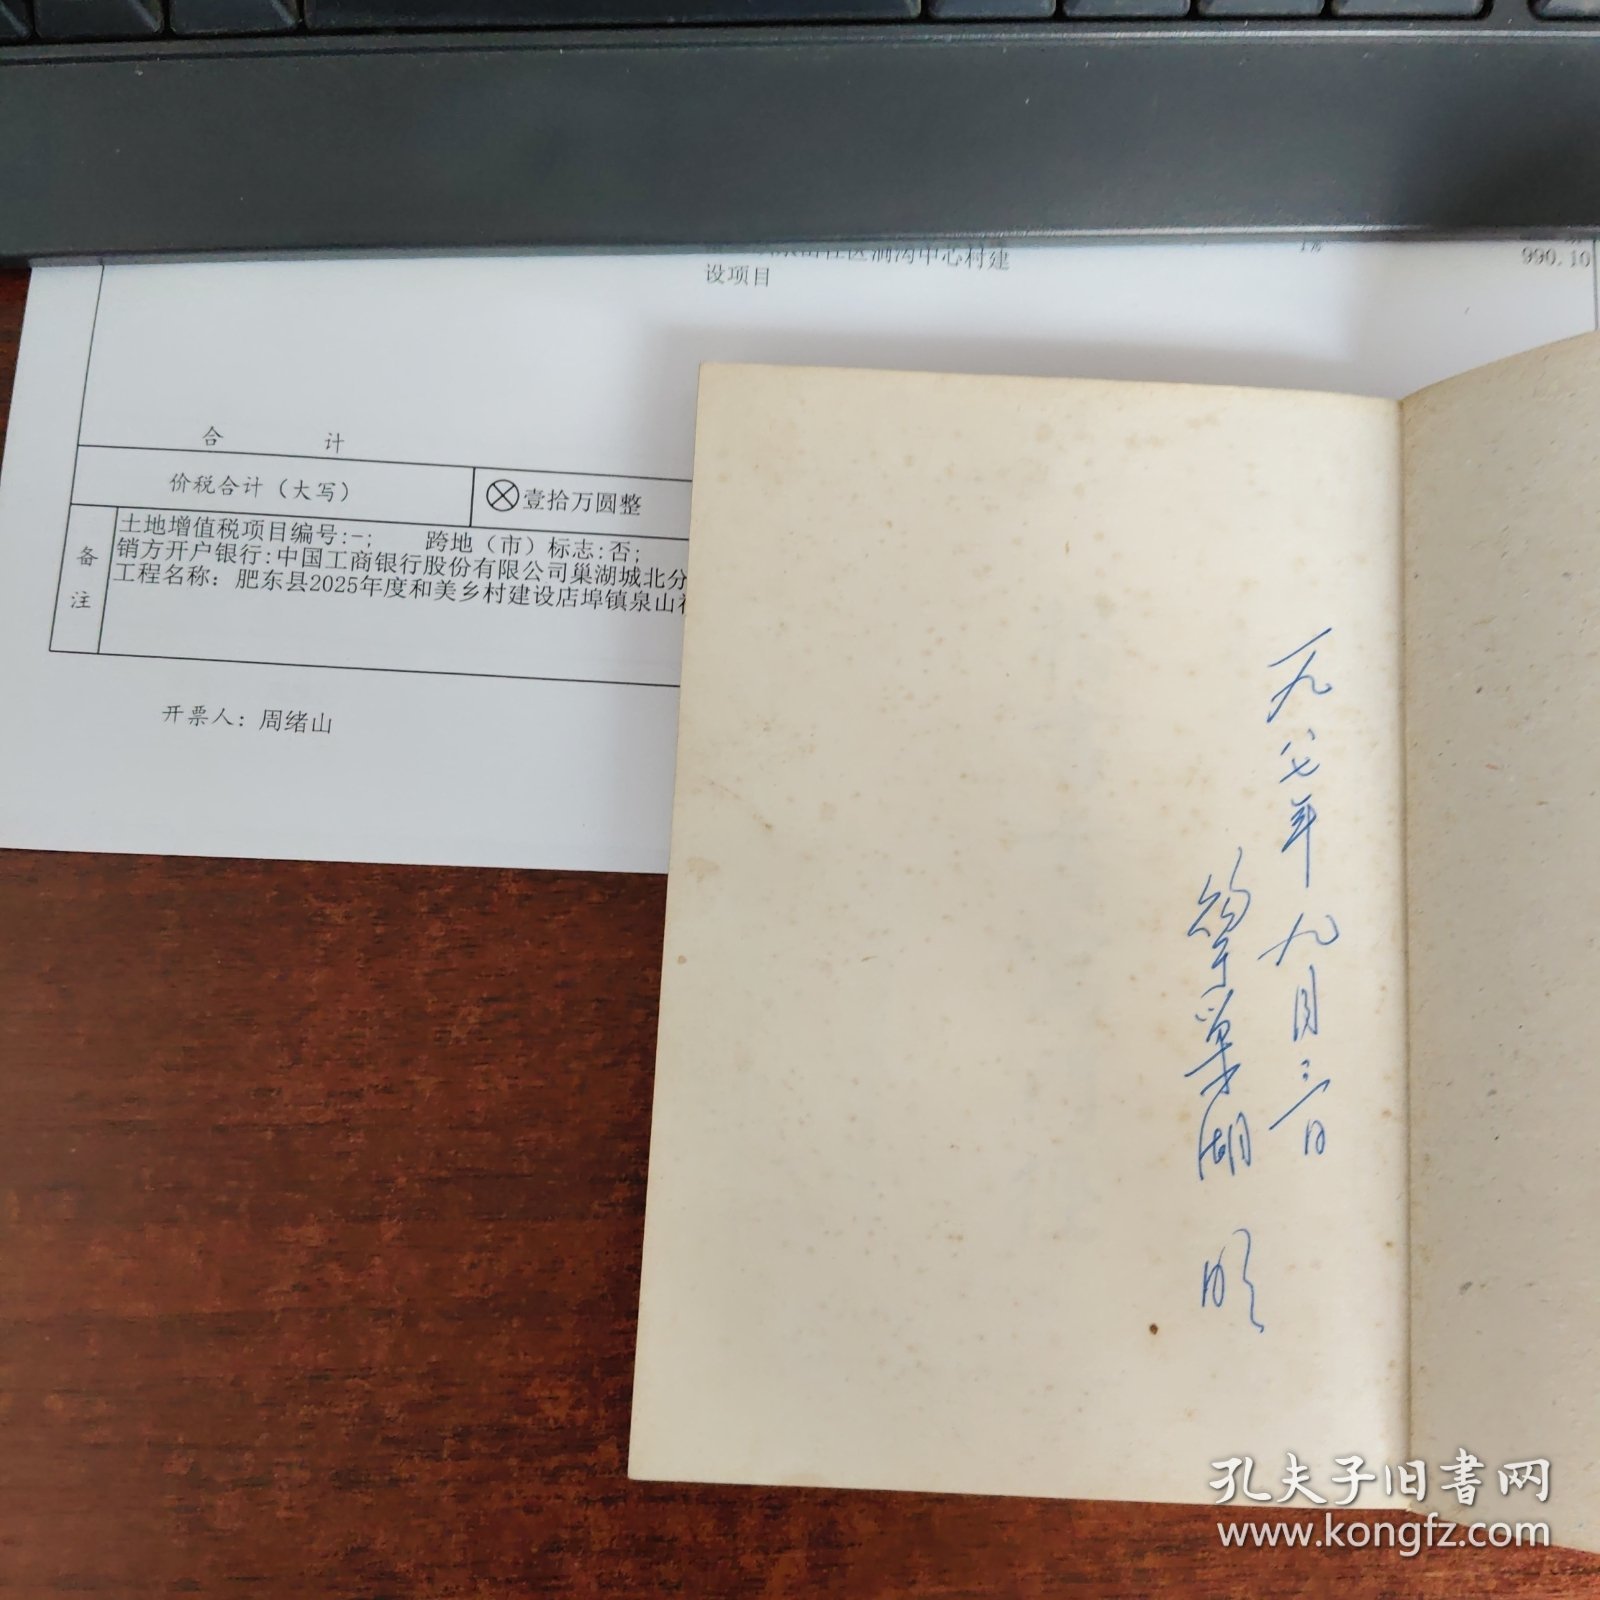 中心村建
设项目
1%
990.10
合 计
价税合计（大写）
ⓧ壹拾万圆整
备注
土地增值税项目编号:-; 跨地（市）标志:否;
销方开户银行:中国工商银行股份有限公司巢湖城北分
工程名称: 肥东县2025年度和美乡村建设店埠镇泉山
开票人: 周绪山
一九八七年九月三日
购于巢湖
孔夫子旧书网
www.kongfz.com